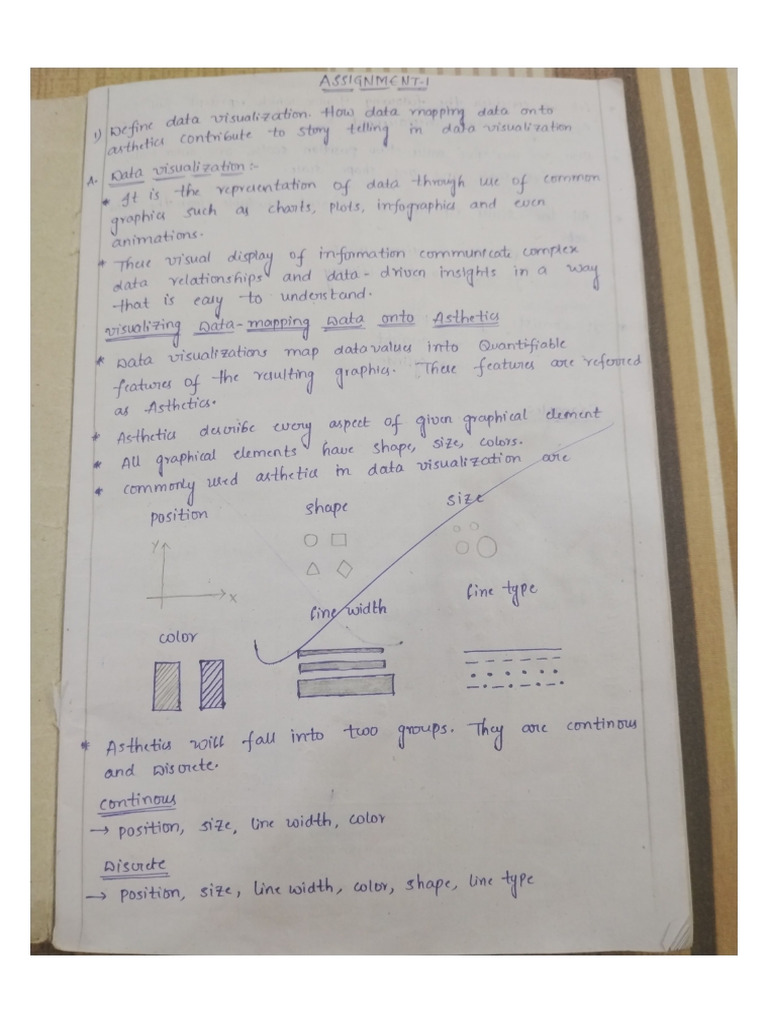 ASSIGNMENT-1
1) Define data visualization. How data mapping data onto
asthetics contribute to story telling in data visualization
A. Data visualization :-
* It is the representation of data through use of common
graphics such as charts, plots, infographics and even
animations.
* These visual display of information communicate complex
data relationships and data-driven insights in a way
that is easy to understand.
visualizing Data-mapping Data onto Asthetics
* Data visualizations map data values into Quantifiable
features of the resulting graphics. These features are referred
as Asthetics.
* Asthetics describe every aspect of given graphical element
* All graphical elements have shape, size, colors.
* commonly used asthetics in data visualization are
position shape size
Y
X
line width line type
color
* Asthetics will fall into two groups. They are continous
and Discrete.
continous
→ position, size, line width, color
Discrete
→ position, size, line width, color, shape, line type